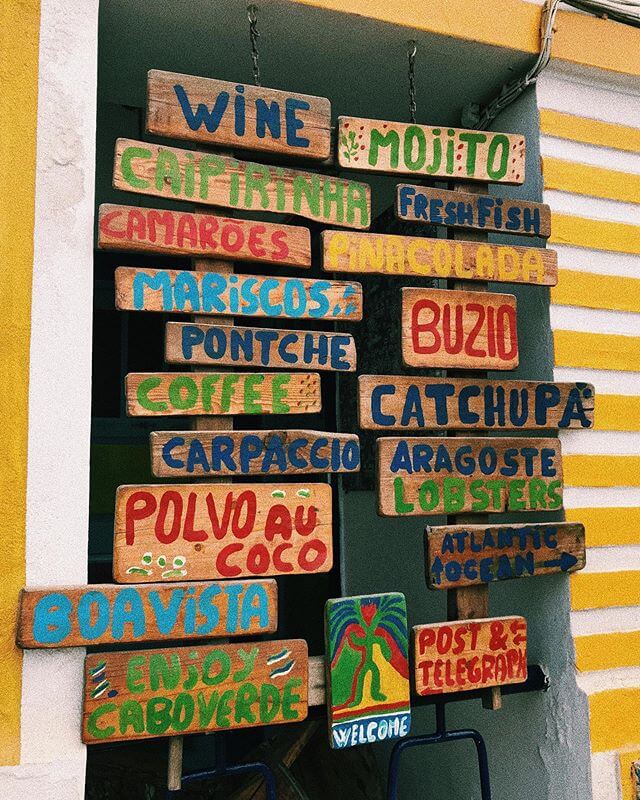 WiNE
CAiPiRiNHA
CAMARÕES
MARiSCOS
PONTCHE
COFFEE
CARPACCIO
POLVO AU
COCO
BOAVISTA
ENJOY
CABOVERDE
MOJiTO
FRESH FiSH
PiNACOLADA
BUZIO
CATCHUPA
ARAGOSTE
LOBSTERS
ATLANTIC
OCEAN
POST &
TELEGRAPH
WELCOME